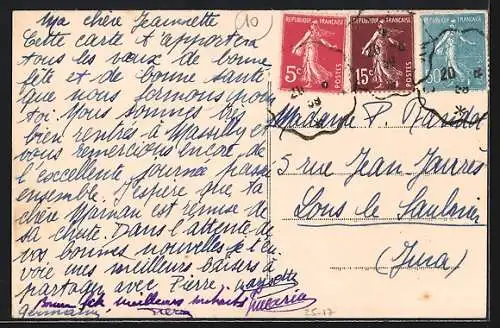 Ma chère Jeannette
Cette carte t'apportera
tous les vœux de bonne
fête et de bonne santé
que nous formons pour
toi. Nous sommes
bien rentrés à
vous remercions encore de
l'excellente journée passée
ensemble. J'espère que ta
chère Maman est remise de
sa chute. Dans l'attente de
vos bonnes nouvelles je t'en
voie mes meilleurs baisers à
partager avec Pierre.
Bonne fête meilleurs
Germaine
25-17
10
REPUBLIQUE FRANÇAISE
5c
POSTES
REPUBLIQUE FRANÇAISE
15c
POSTES
REPUBLIQUE FRANÇAISE
Madame P.
5 rue Jean Jaurès
Lons le Saulnier
(Jura)